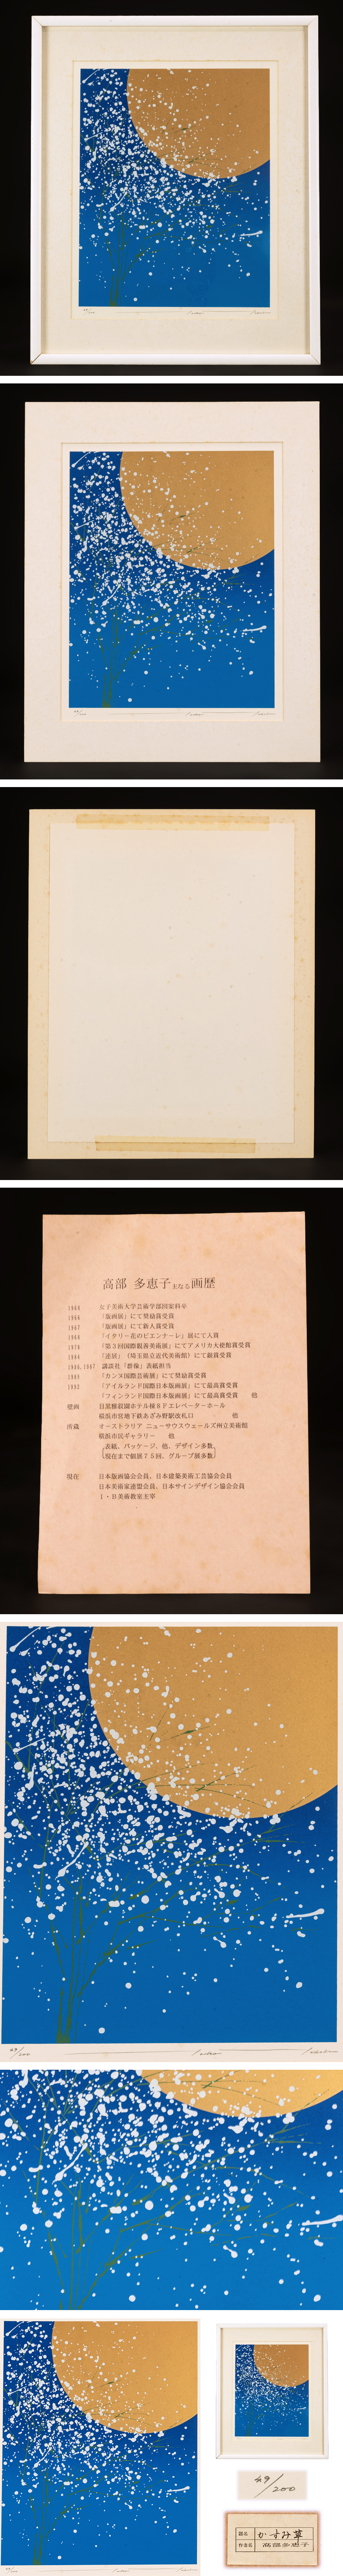 49/200
高部 多恵子 主なる画歴
1964 女子美術大学芸術学部図案科卒
1966 「版画展」にて奨励賞受賞
1967 「版画展」にて新人賞受賞
1968 「イタリー花のビエンナーレ」展にて入賞
1970 「第3回国際観善美術展」にてアメリカ大使館賞受賞
1984 「連展」(埼玉県立近代美術館)にて銀賞受賞
1986,1987 講談社「群像」表紙担当
1989 「カンヌ国際芸術展」にて奨励賞受賞
1992 「アイルランド国際日本版画展」にて最高賞受賞
「フィンランド国際日本版画展」にて最高賞受賞 他
壁画 目黒雅叙園ホテル棟8Fエレベーターホール
横浜市営地下鉄あざみ野駅改札口 他
所蔵 オーストラリア ニューサウスウェールズ州立美術館
横浜市民ギャラリー 他
表紙、パッケージ、他、デザイン多数
現在まで個展75回、グループ展多数
現在 日本版画協会会員、日本建築美術工芸協会会員
日本美術家連盟会員、日本サインデザイン協会会員
I・B美術教室主宰
49/200
49/200
題名 かすみ草
作者名 高部多恵子